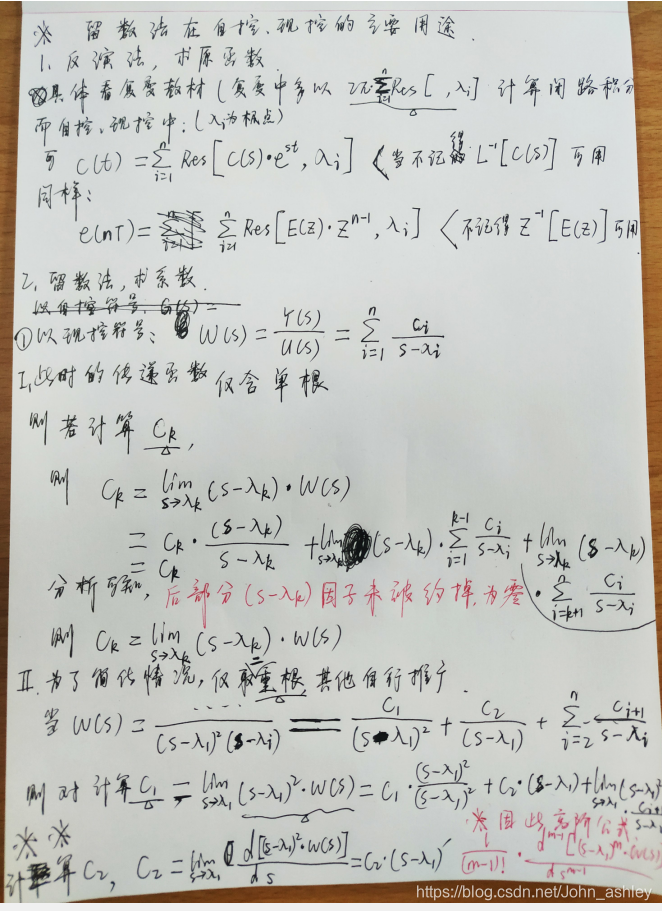 ※ 留数法在自控、现控的主要用途.
1. 反演法，求原函数.
具体看复变教材(复变中多以 2πi·∑_{i=1}^{n} Res[ , λi] 计算闭路积分
而自控、现控中: (λi为极点)
可 C(t) = ∑_{i=1}^{n} Res[C(s)·e^{st}, λi] <当不记得 L^{-1}[C(s)] 可用
同样:
e(nT) = ∑_{i=1}^{n} Res[E(z)·z^{n-1}, λi] <不记得 Z^{-1}[E(z)] 可用
2. 留数法，求系数.
以自控符号: G(s) =
① 以现控符号: W(s) = Y(s)/U(s) = ∑_{i=1}^{n} Ci/(s-λi)
I. 此时的传递函数仅含单根
则若计算 Ck,
则 Ck = lim_{s→λk} (s-λk)·W(s)
= Ck·(s-λk)/(s-λk) + lim_{s→λk} (s-λk)·∑_{i=1}^{k-1} Ci/(s-λi) + lim_{s→λk} (s-λk)
= Ck
·∑_{i=k+1}^{n} Ci/(s-λi)
分析可知, 后部分(s-λk)因子未被约掉, 为零
则 Ck = lim_{s→λk} (s-λk)·W(s)
II. 为了简化情况, 仅取重根, 其他自行推广.
当 W(s) = ……/((s-λ1)²(s-λi)) = C1/(s-λ1)² + C2/(s-λ1) + ∑_{i=2}^{n} Ci+1/(s-λi)
则对计算C1 = lim_{s→λ1} (s-λ1)²·W(s) = C1·(s-λ1)²/(s-λ1)² + C2·(s-λ1) + lim_{s→λ1} (s-λ1)²·Ci+1/(s-λi)
※因此高阶公式
※※
计算C2, C2 = lim_{s→λ1} d[(s-λ1)²·W(s)]/ds = C2·(s-λ1)′
1/(m-1)! · d^{m-1}[(s-λ1)^m·W(s)]/ds^{m-1}
https://blog.csdn.net/John_ashley